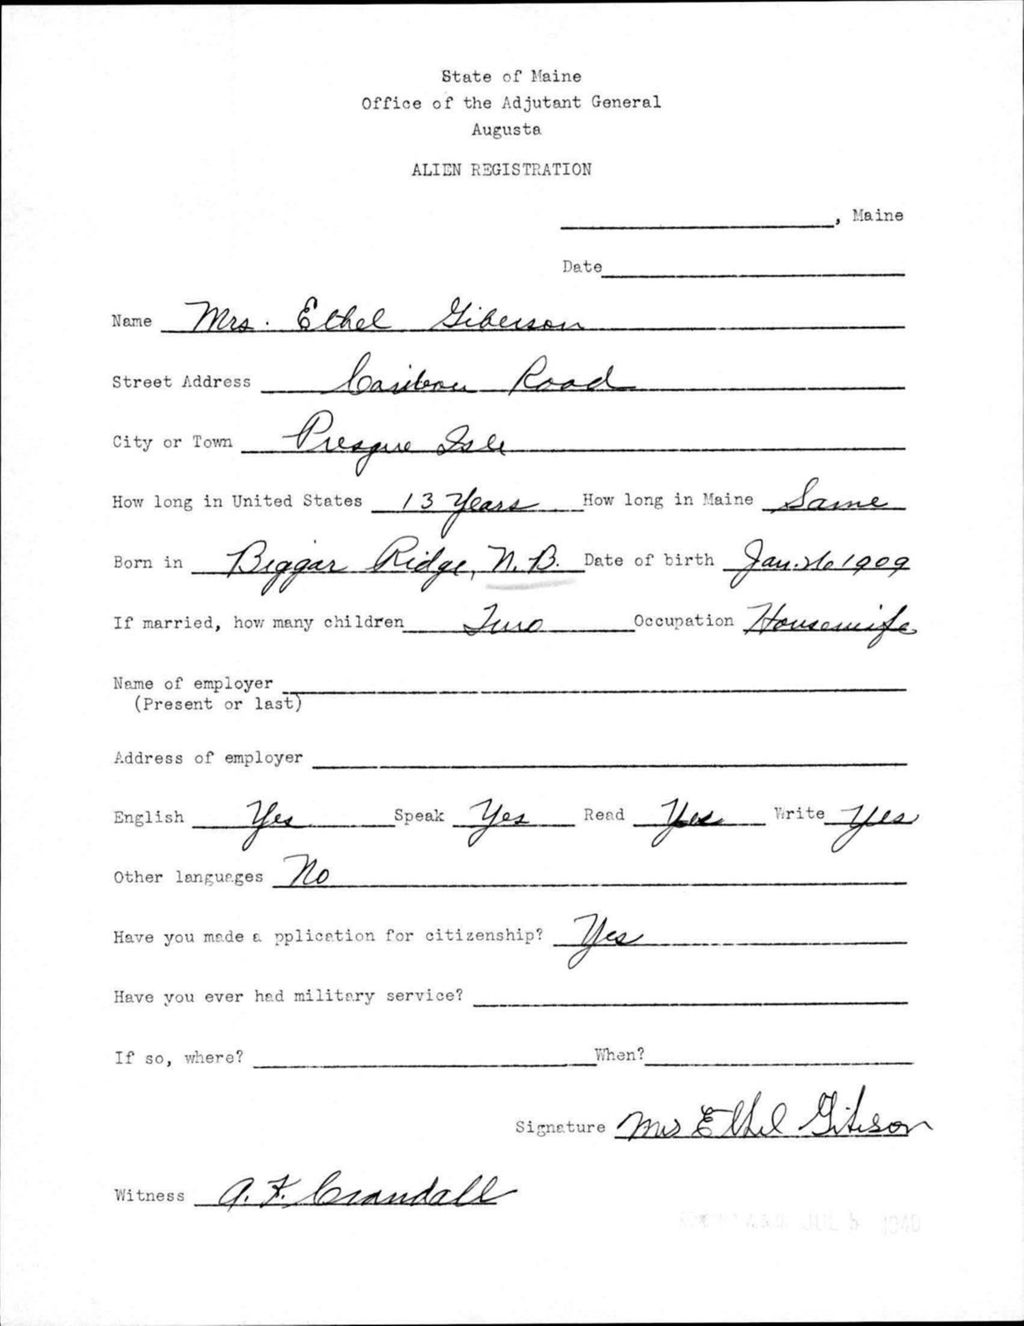 State of Maine
Office of the Adjutant General
Augusta
ALIEN REGISTRATION
, Maine
Date
Name Mrs. Ethel Giberson
Street Address Caribou Road
City or Town Presque Isle
How long in United States 13 Years How long in Maine Same
Born in Biggar Ridge, N.B. Date of birth Jan. 26 1909
If married, how many children Two Occupation Housewife
Name of employer
(Present or last)
Address of employer
English Yes Speak Yes Read Yes Write Yes
Other languages No
Have you made a pplication for citizenship? Yes
Have you ever had military service?
If so, where? When?
Signature Mrs Ethel Giberson
Witness A. F. Crandall
JUL 5 1940